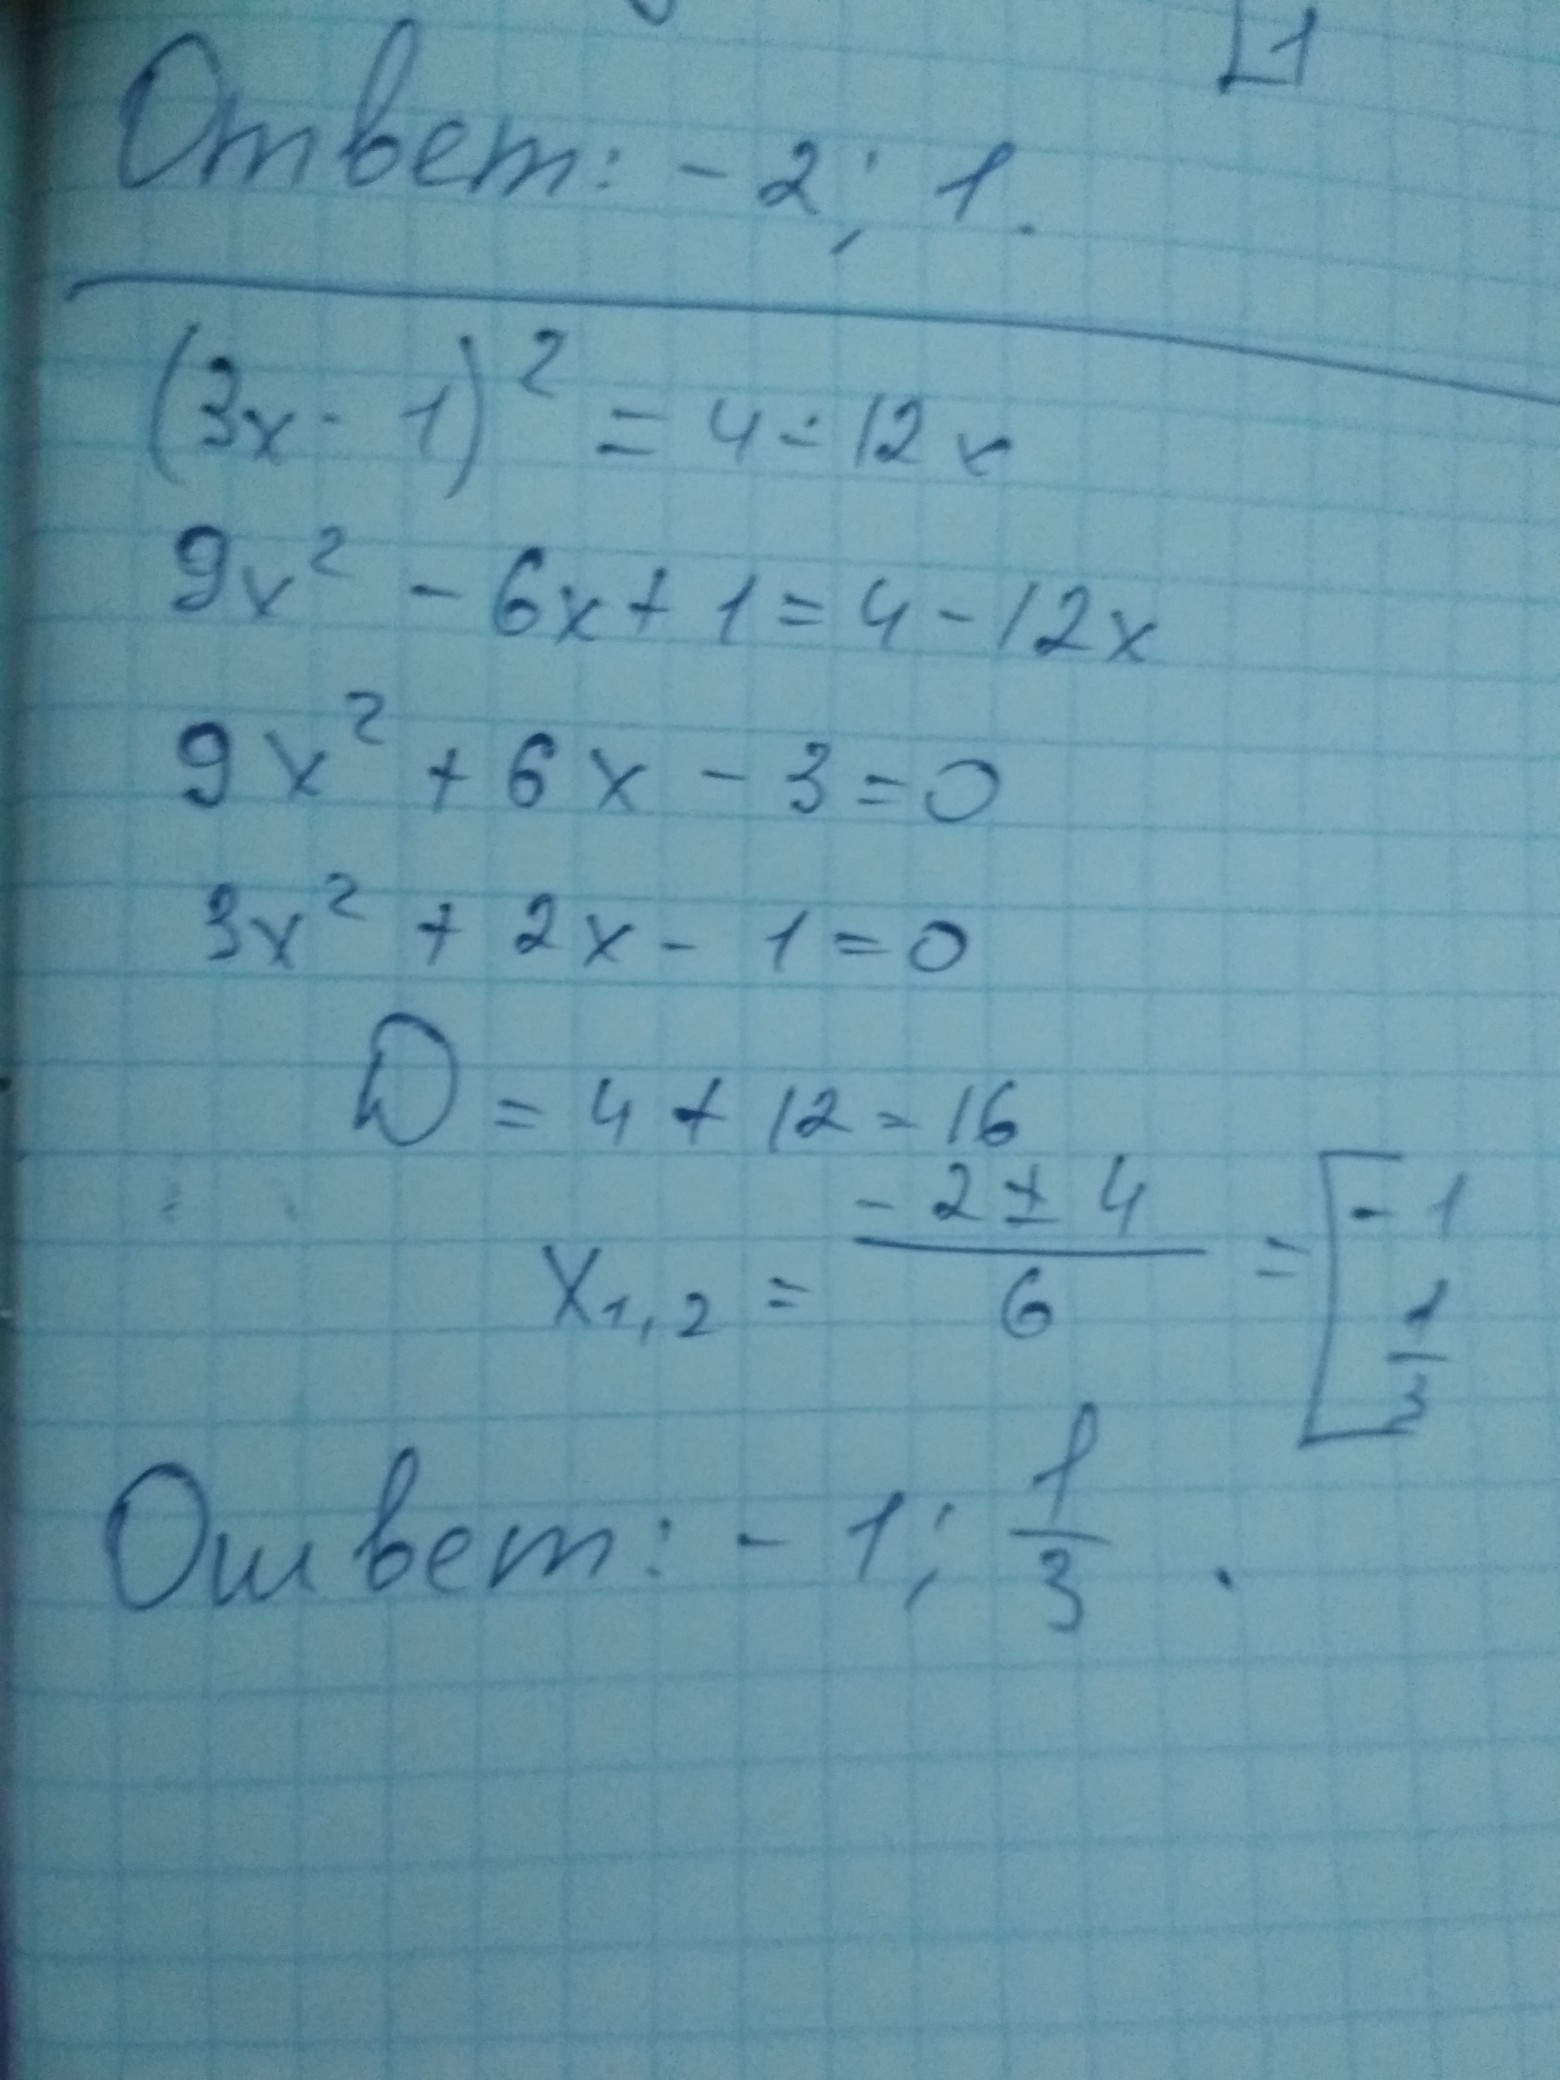 1
Ответ: -2; 1.
(3x - 1)² = 4 - 12x
9x² - 6x + 1 = 4 - 12x
9x² + 6x - 3 = 0
3x² + 2x - 1 = 0
D = 4 + 12 = 16
x₁,₂ = (-2 ± 4)/6 = [-1 1/3
Ответ: -1; 1/3.